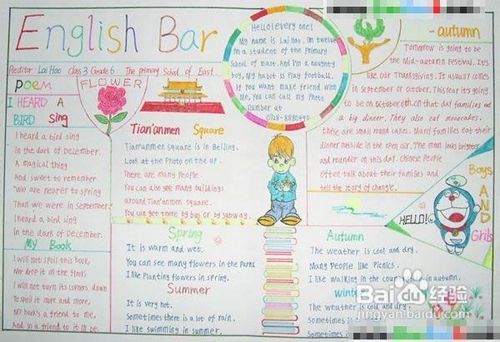 English Bar
Reditor Lai Hao Class 3 Grade 6 The primary School of East
poem
I HEARD A
BIRD Sing
I heard a bird sing
In the dark of December.
A magical thing
And sweet to remember
"We are nearer to spring
Than we were in september"
I heard a bird sing
In the dark of December.
My Book
I will not spoil this book,
Nor drop it on the floor.
I will not turn its corners down
To spoil it more and more,
My book's a friend to me,
And so a friend to it I'll be
FLOWER
Tian'anmen Square
Tiananmen square is in Beijing.
Look at the Photo on the up.
There are many People.
You can also see many buildings
around Tian'anmen Square.
You can get there by bus or by subway.
Hello! every one!
My name is Lai Hao. I'm twelve
I'm a student of the Primary
School of East. And I'm a naughty
boy. My habit is Play football.
If you want make friend with
Me, you can call my Phone
number at
-autumn
Tomorrow is going to be
the Mid-autumn festival. It's
like our Thanksgiving. It usually comes
in September or October. This year it's going
to be on October 6th. on that day families eat
a big dinner. They also eat mooncakes.
These are small round cakes. Many families eat their
dinner outside in the open air. The moon looks brightest
and rounder on this day. Chinese People
often talk about their families and
tell the story of change.
Boys
AND
Grils
HELLO!
Spring
It is warm and wet.
You can see many flowers in the Parks
I like Planting flowers in spring.
Summer
It is very hot.
Sometimes it is rain a lot
I like swimming in summer.
Autumn
The weather is cool and dry.
Many People like Picnics.
I like walking in the country in autumn.
winter
The weather is cold and dry.
Sometimes there is
Baidu 经验
jingyan.baidu.com